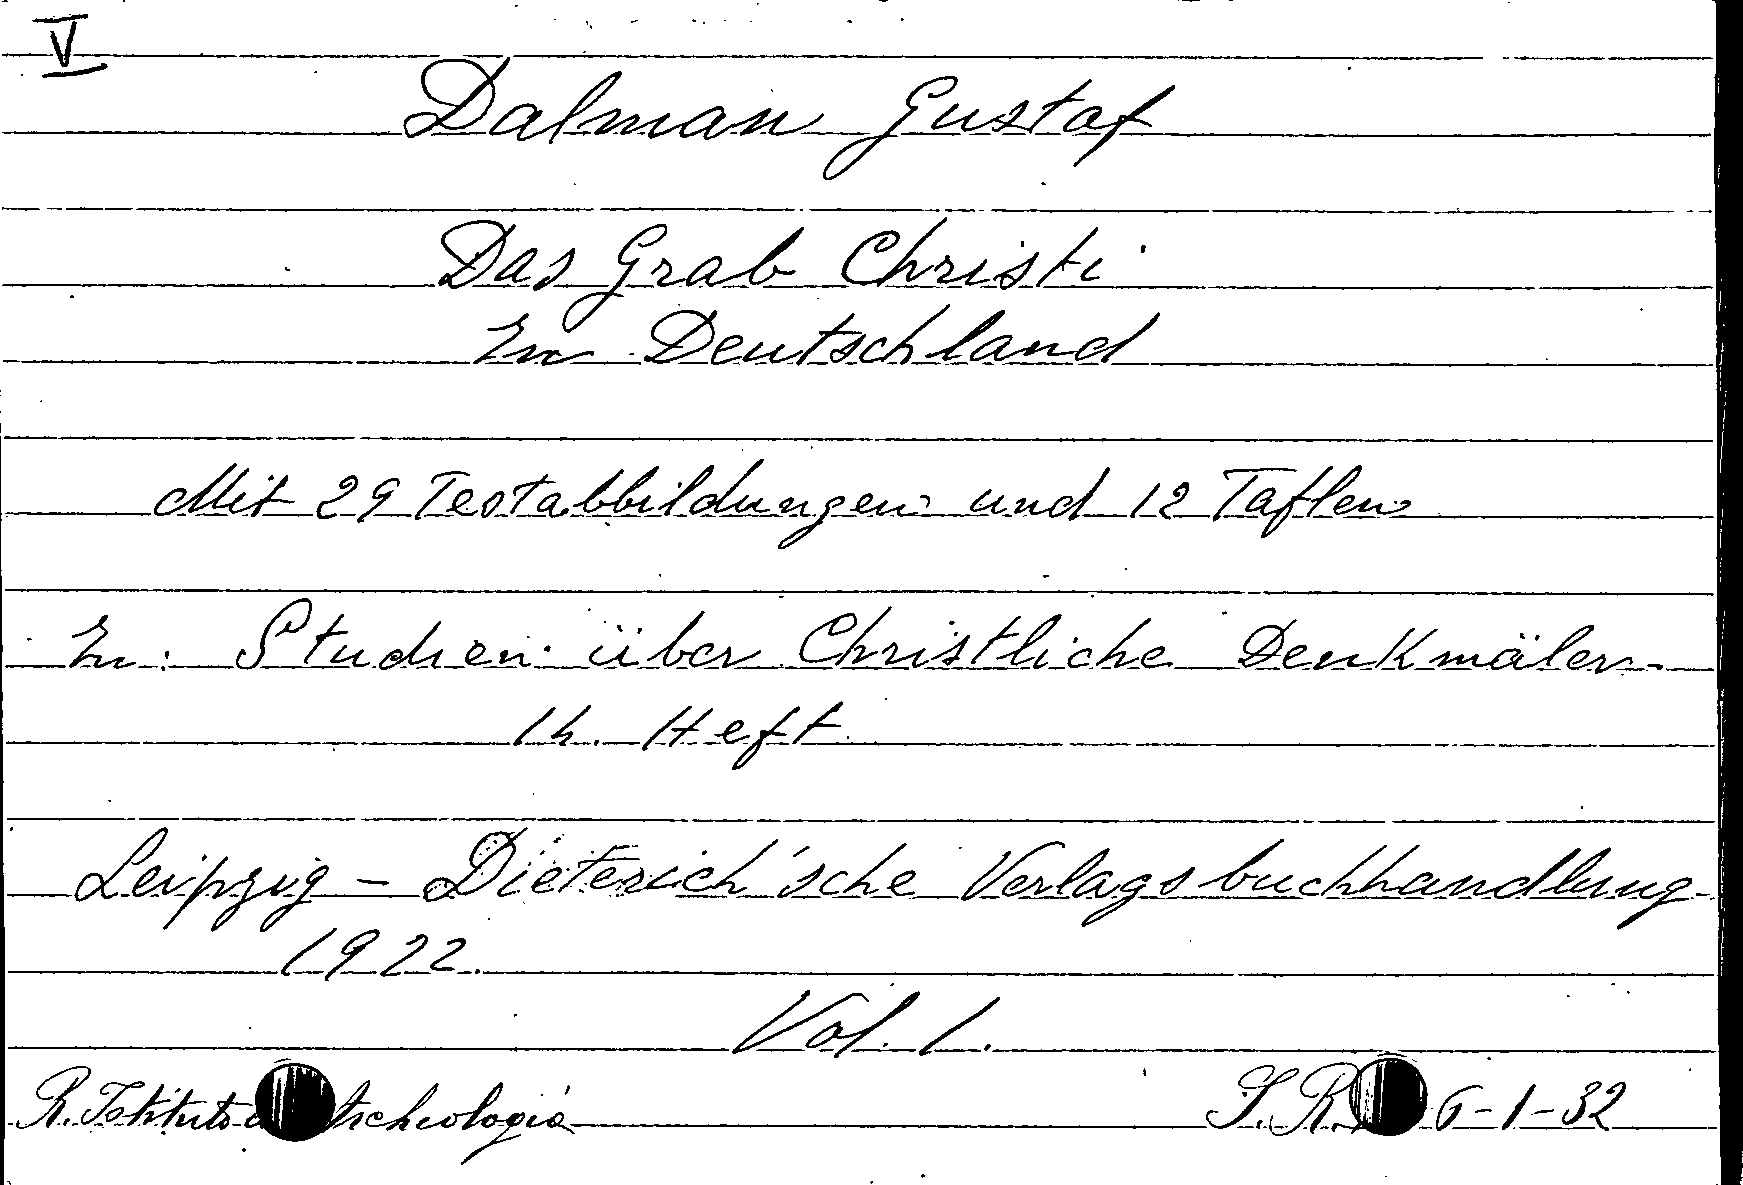 V
Dalman Gustaf
Das Grab Christi
In Deutschland
Mit 29 Testabbildungen und 12 Taflen
In: Studien über Christliche Denkmäler
14. Heft
Leipzig - Dieterich'sche Verlagsbuchhandlung
1922.
Vol. 1.
R. Istituto archeologia
S. R. 6-1-32